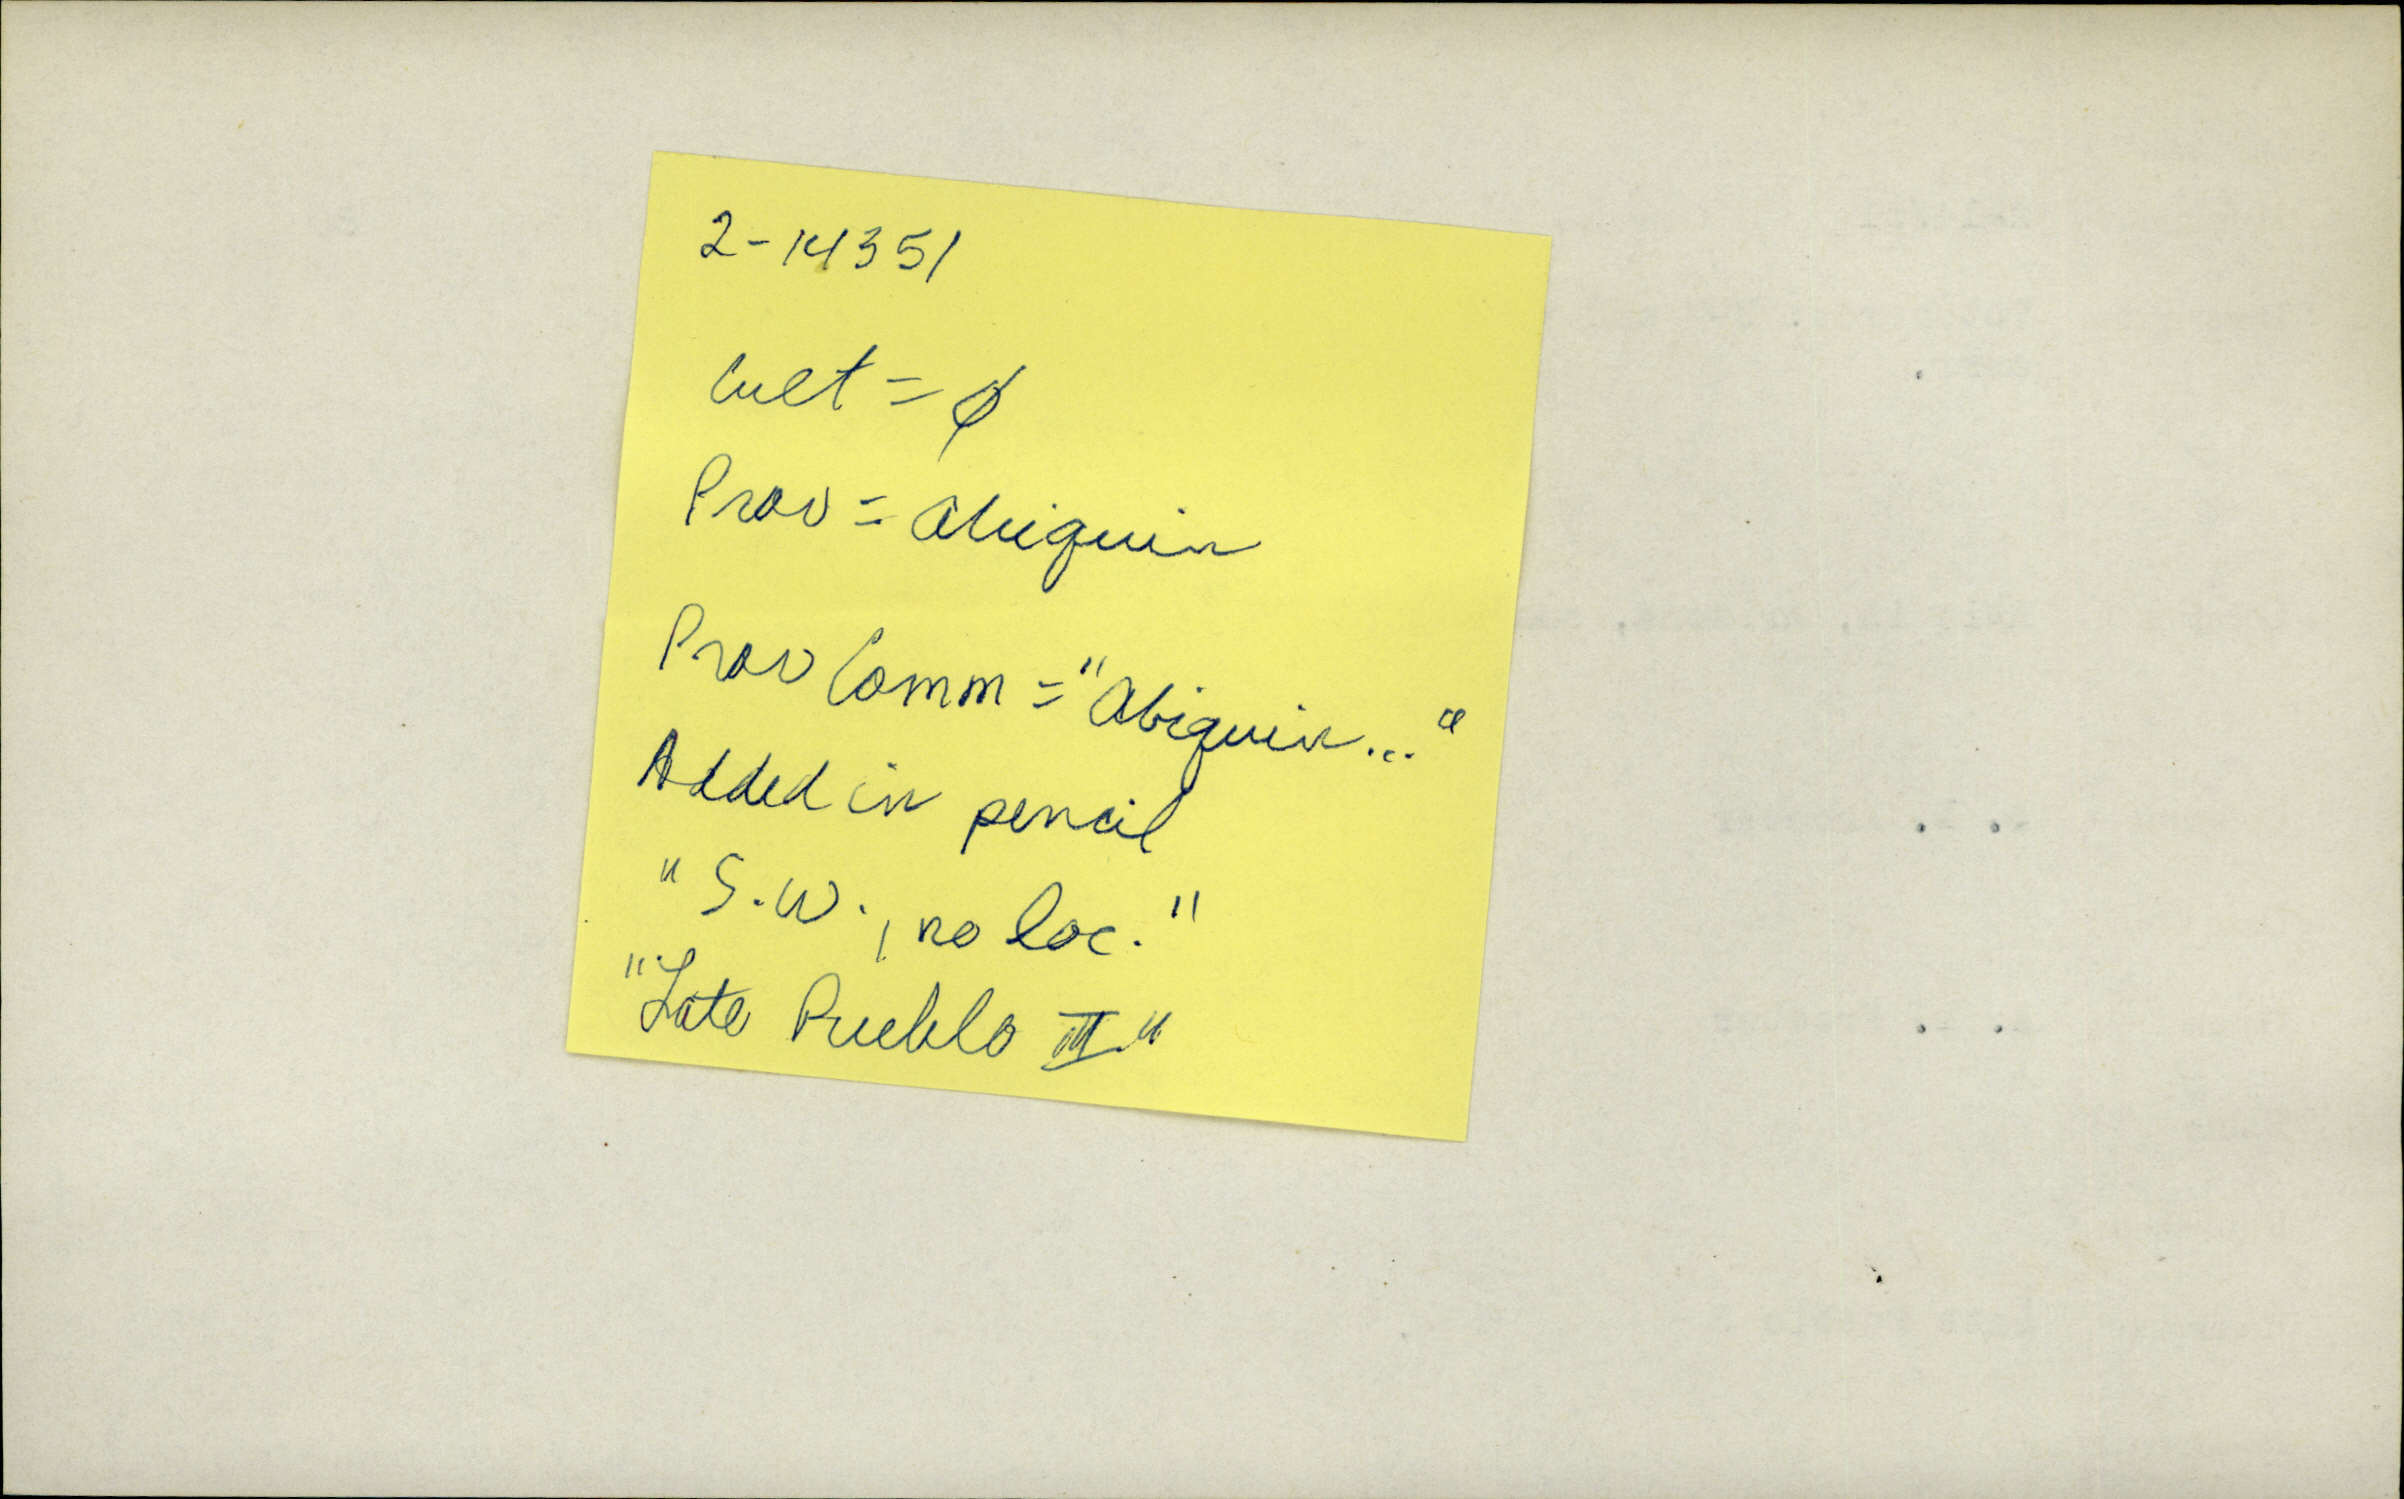 2-14351
Cult = ø
Prov = Abiquin
Prov Comm = "Abiquin..."
Added in pencil
"S.W., no loc."
"Late Pueblo III"